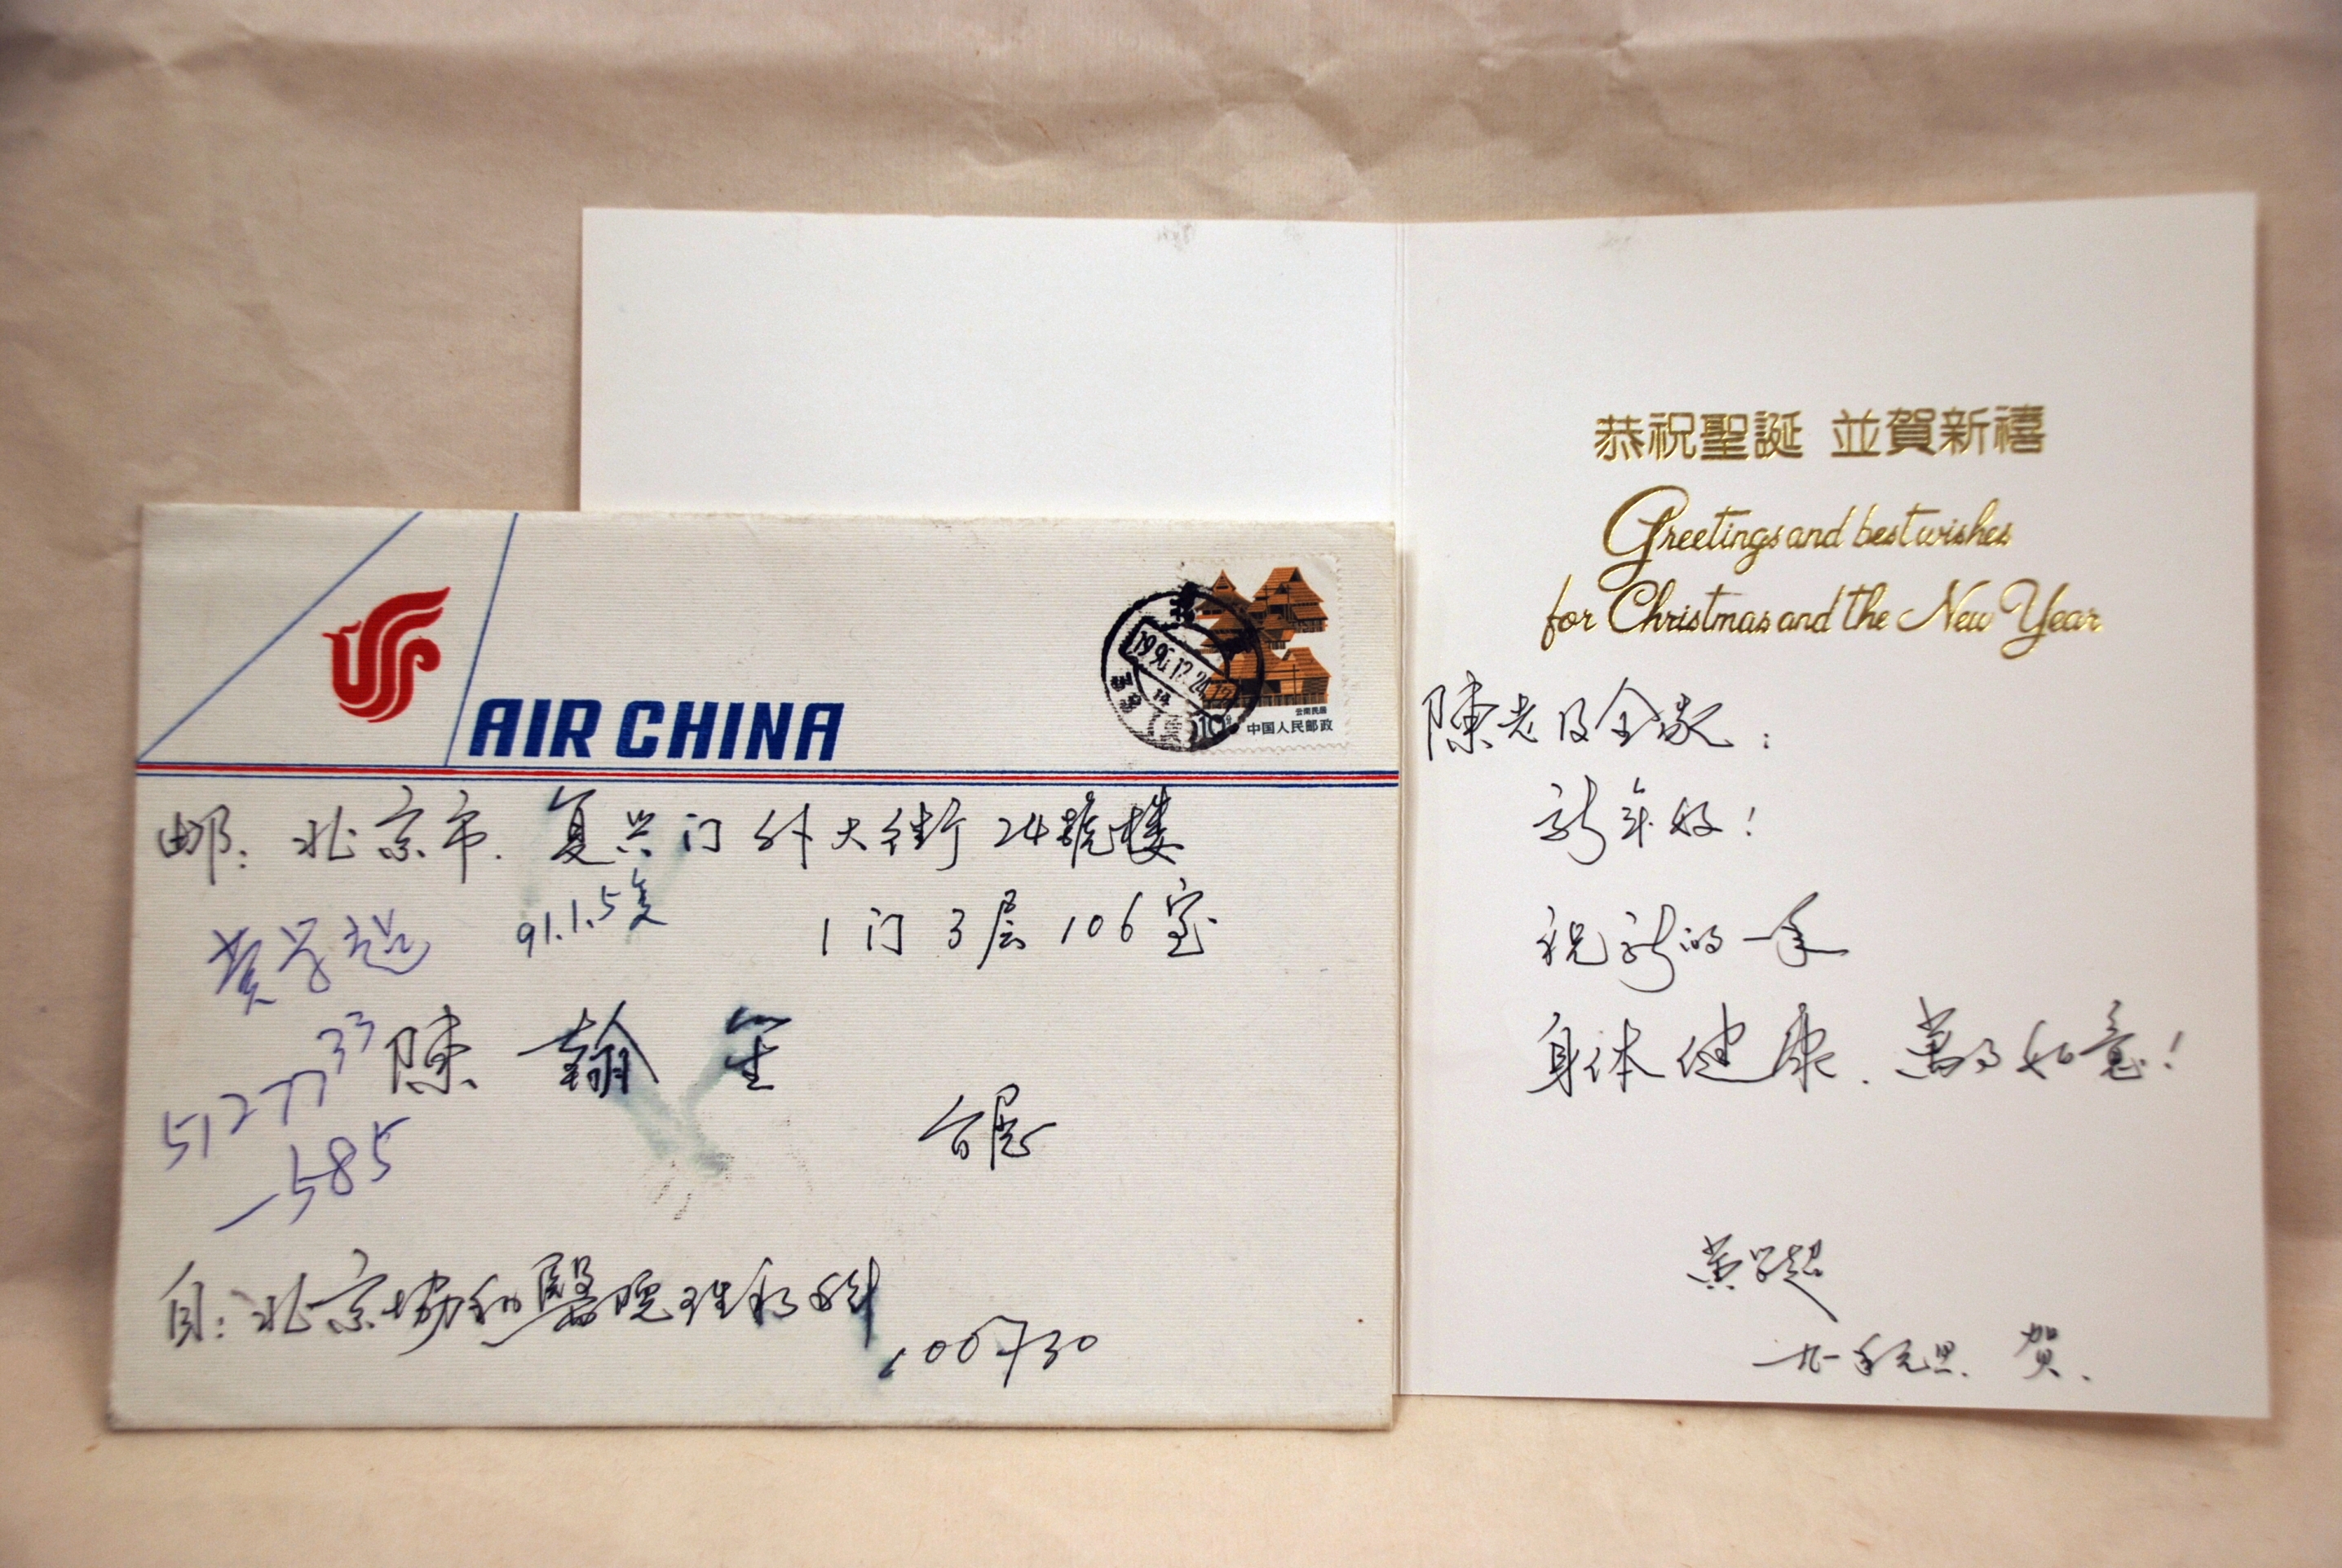 AIR CHINA
云南民居
中国人民邮政
邮: 北京市. 复兴门外大街24號楼
91.1.5复
1门3层106室
黄学超
陳翰笙
5127733
-585
自: 北京協和醫院理疗科
100730
恭祝聖誕 並賀新禧
Greetings and best wishes
for Christmas and the New Year
陳老及全家:
新年好!
祝新的一年
身体健康. 萬事如意!
黄学超
九一年元旦. 贺.